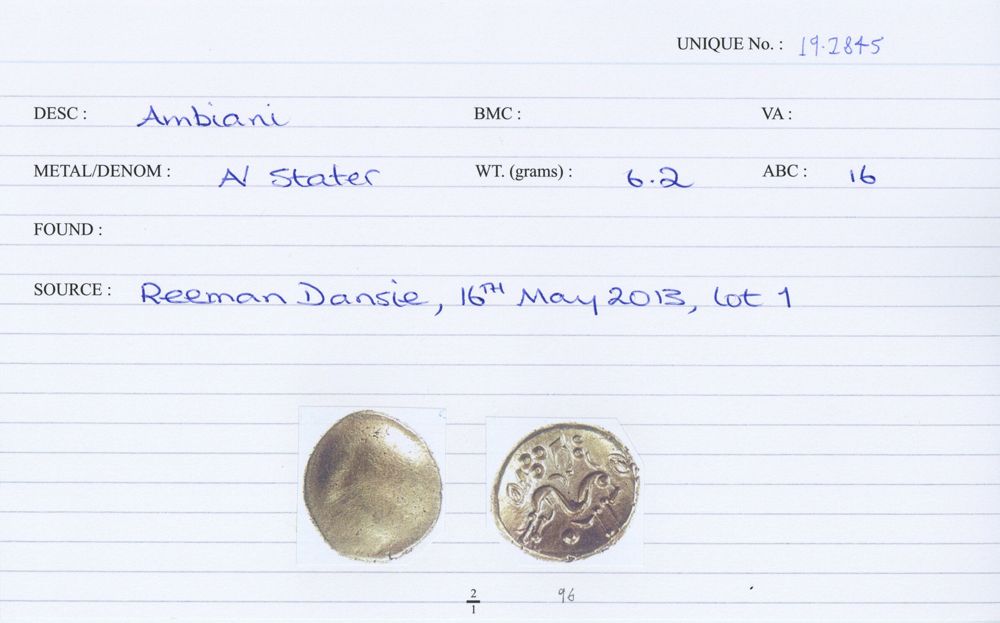 UNIQUE No. : 19.2845
DESC : Ambiani BMC : VA :
METAL/DENOM : AV Stater WT. (grams) : 6.2 ABC : 16
FOUND :
SOURCE : Reeman Dansie, 16TH May 2013, Lot 1
2/1 96